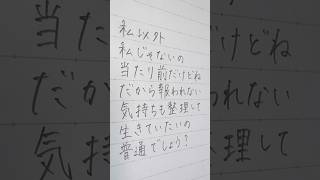 私以外
私じゃないの
当たり前だけどね
だから報われない
気持ちも整理して
生きていたいの
普通でしょう?